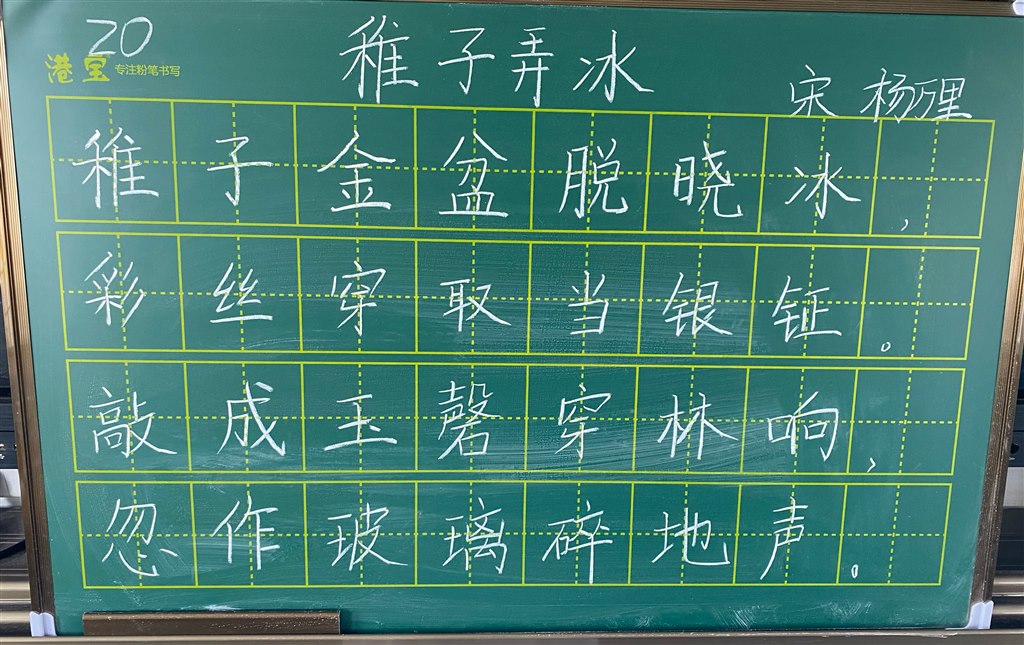 20
港宝 专注粉笔书写
稚子弄冰
宋 杨万里
稚子金盆脱晓冰，
彩丝穿取当银钲。
敲成玉磬穿林响，
忽作玻璃碎地声。